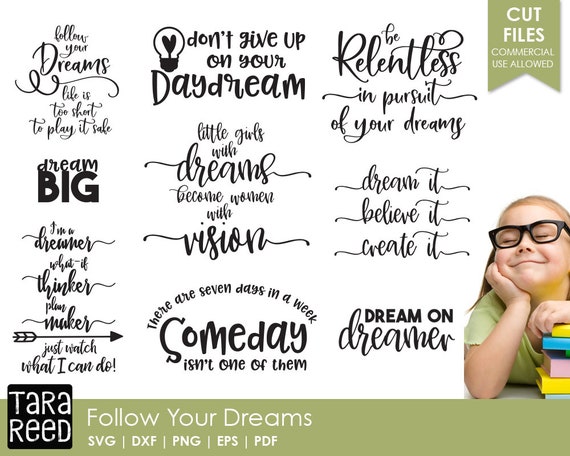 follow
your
Dreams
life is
too short
to play it safe
don't give up
on your
Daydream
be
Relentless
in pursuit
of your dreams
CUT
FILES
COMMERCIAL
USE ALLOWED
dream
BIG
little girls
with
dreams
become women
with
vision
dream it
believe it
create it
I'm a
dreamer
what-if
thinker
plan
maker
just watch
what I can do!
There are seven days in a week
Someday
isn't one of them
DREAM ON
dreamer
TARA
REED
Follow Your Dreams
SVG | DXF | PNG | EPS | PDF